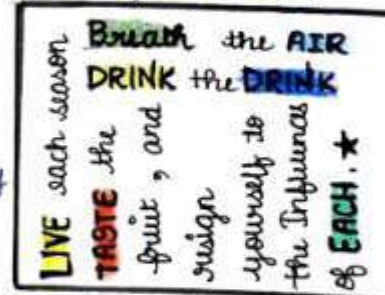 LIVE each season
Breath the AIR
DRINK the DRINK
TASTE the
fruit, and
resign
yourself to
the Influences
of EACH. ★